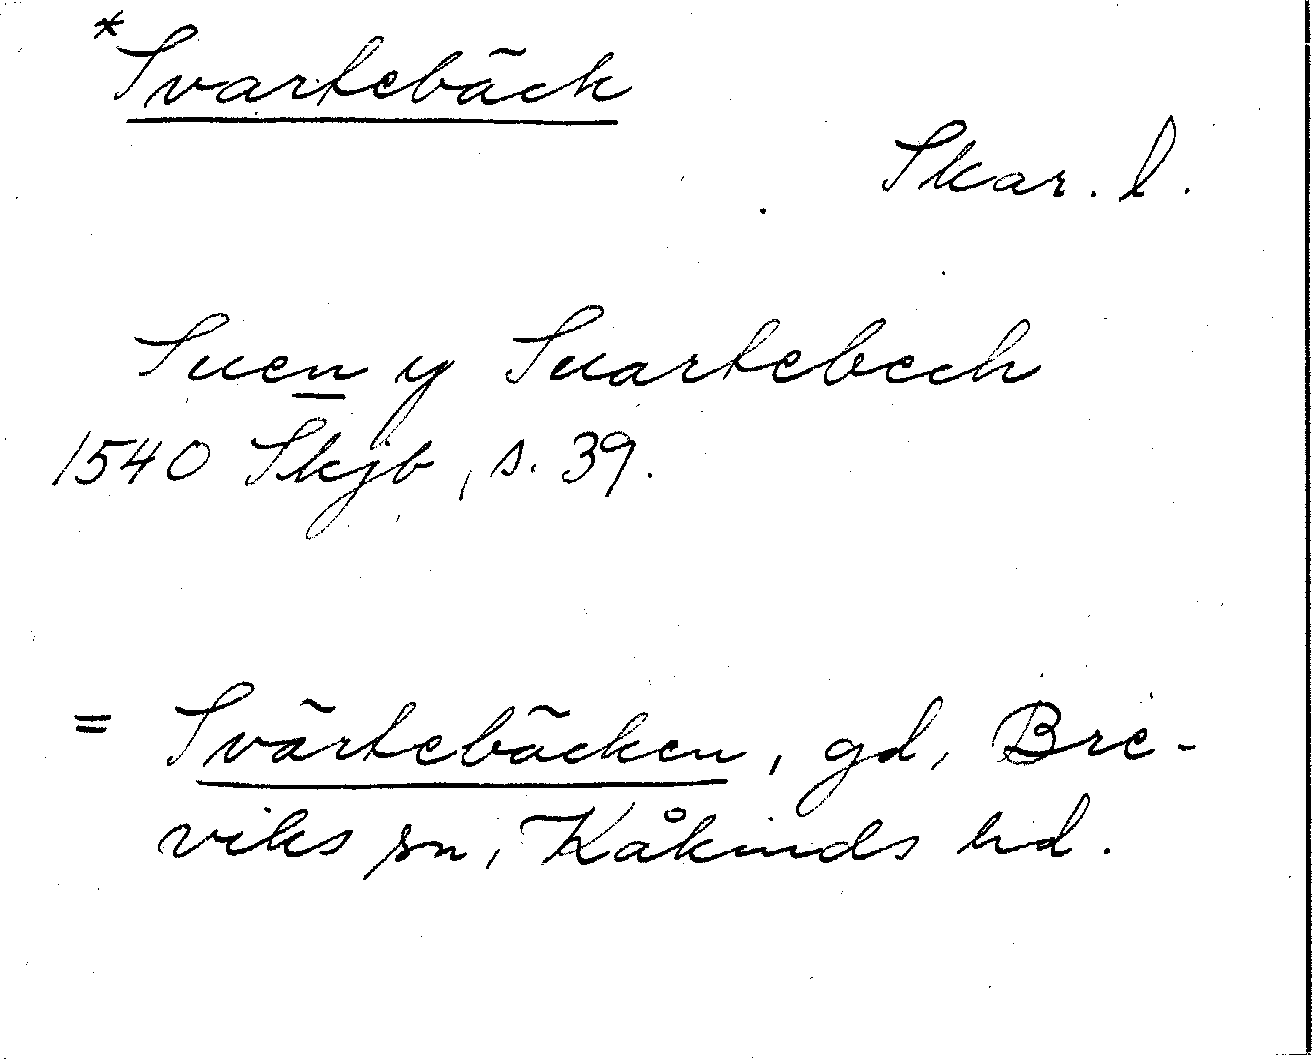 *Svartebäck
Skar. l.
Suen y Suartebech
1540 Skjb, s. 39.
= Svärtebäcken, gd, Bre-
viks sn, Kåkinds hd.